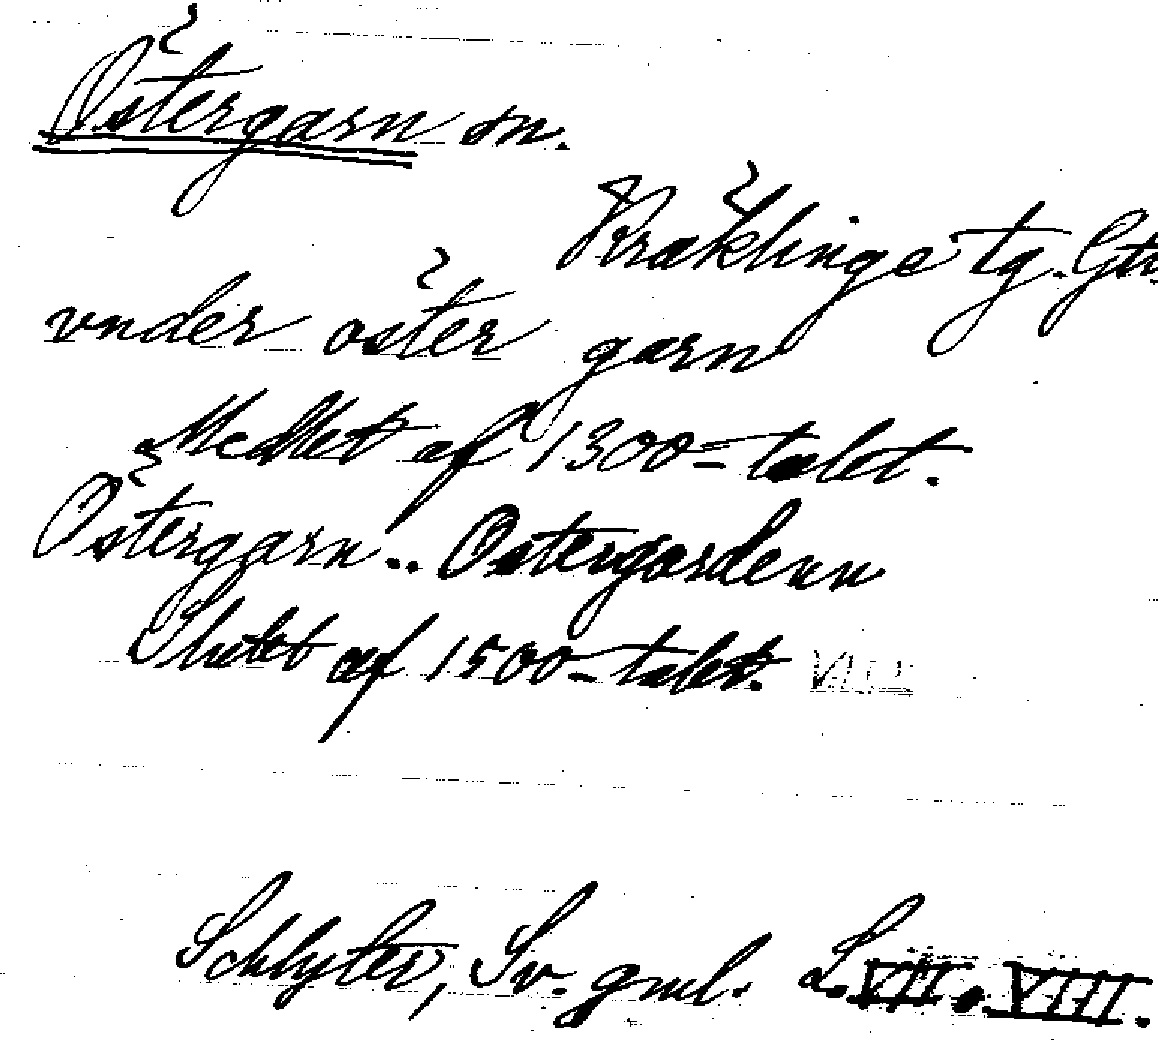 Östergarn sn.
Kräklinge tg. Gtl.
vnder öster garn
Medlet af 1300-talet.
Östergarn.. Ostergardenn
Slutet af 1500-talet.
Schlyter, Sv. gml. L. VII. VIII.